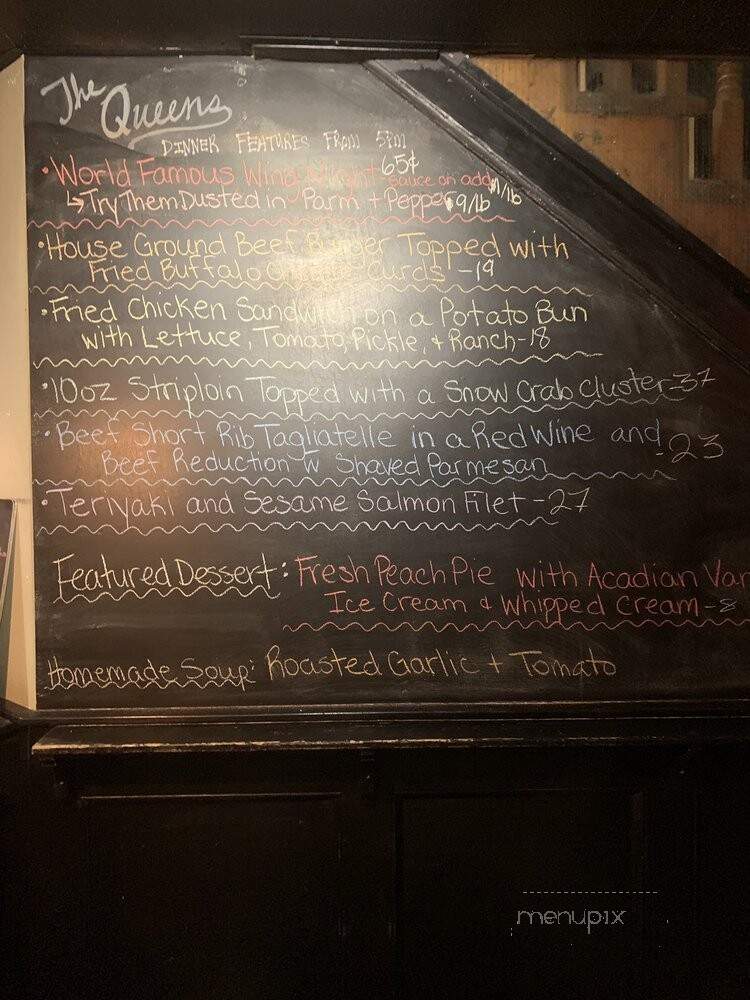 The Queens
DINNER FEATURES FROM 5PM
• World Famous Wing Night 65¢ sauce on add $1/lb
↳ Try Them Dusted in Parm + Pepper $9/lb
• House Ground Beef Burger Topped with
Fried Buffalo Cheese Curds -19
• Fried Chicken Sandwich on a Potato Bun
with Lettuce, Tomato, Pickle, + Ranch-18
• 10oz Striploin Topped with a Snow Crab Cluster-37
• Beef Short Rib Tagliatelle in a Red Wine and
Beef Reduction w Shaved Parmesan -23
• Teriyaki and Sesame Salmon Filet -27
Featured Dessert: Fresh Peach Pie with Acadian Van
Ice Cream & Whipped Cream -8
Homemade Soup: Roasted Garlic + Tomato
menupix